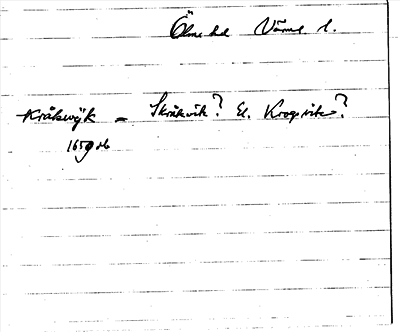 Ölme hd Värml l.
Kråkwyk – Skråkvik? El. Krogsvik?
1659 db